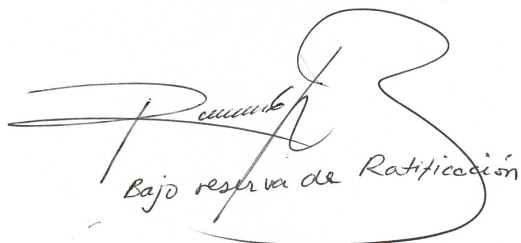 Bajo reserva de Ratificación